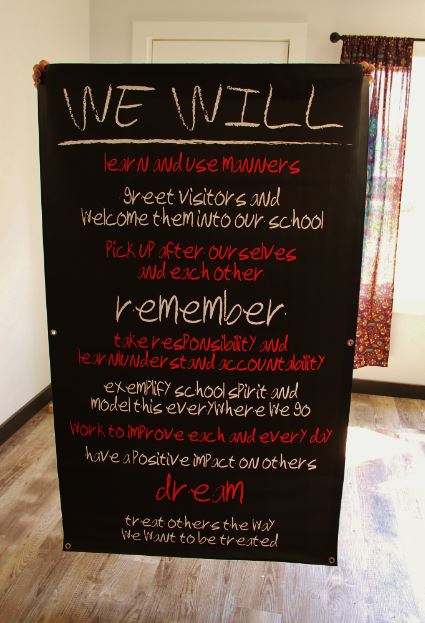 WE WILL
learn and use manners
greet visitors and
welcome them into our school
Pick up after ourselves
and each other
remember
take responsibility and
learn/understand accountability
exemplify school spirit and
model this everywhere we go
work to improve each and every day
have a positive impact on others
dream
treat others the way
we want to be treated